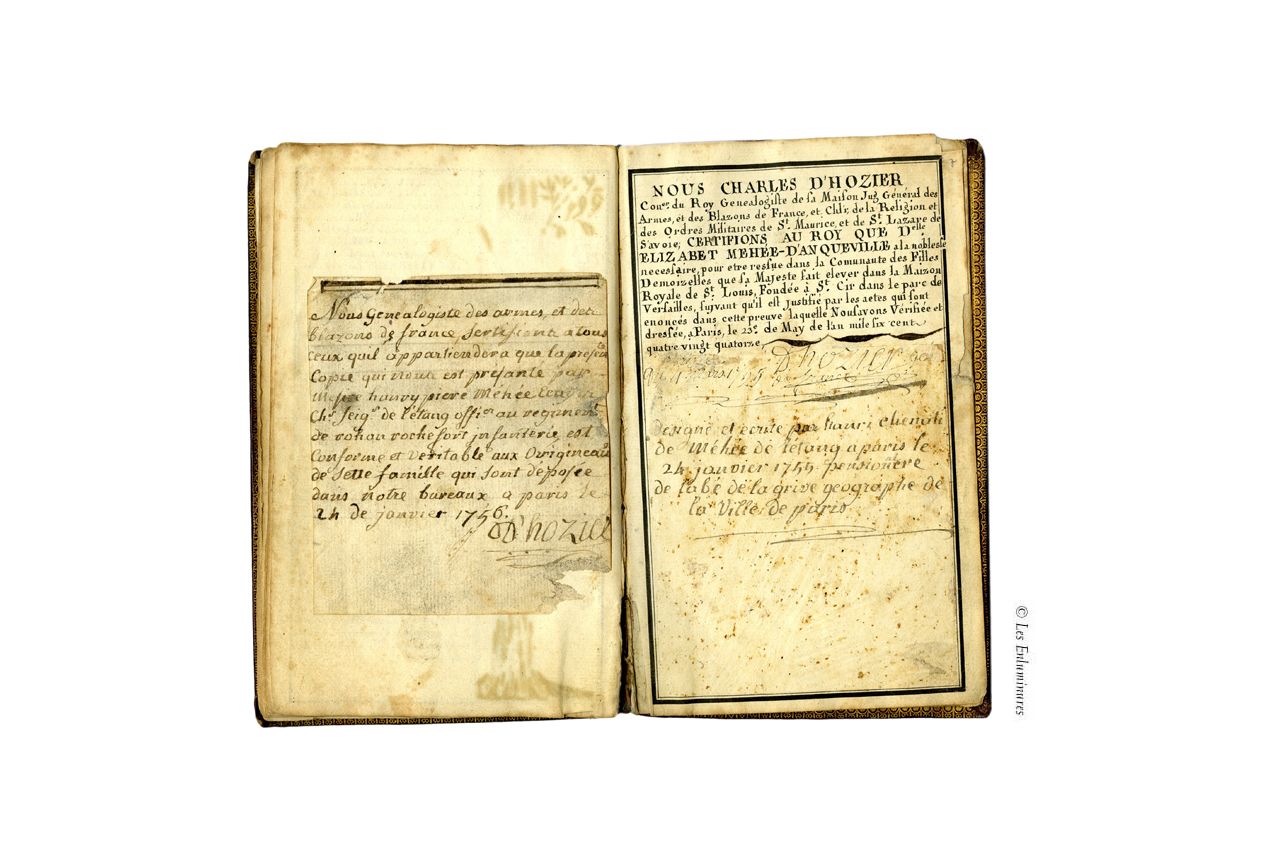 Nous Genealogiste des armes, et des
blazons de france, sertifions a tous
ceux quil appartiendera que la presente
Copie qui nous est presante par
Messre hanry piere Méhée
Chr. Seigr. de létang offier au regiment
de rohan rochefort jnfanterie est
Conforme et Veritable aux Origineaux
de Sette famille qui sont déposée
dans notre bureaux a paris le
24 de janvier 1756.
D'hozier
NOUS CHARLES D'HOZIER
Conser. du Roy Genealogiste de sa Maison Jug Général des
Armes, et des Blazons de France, et Chlr, de la Religion et
des Ordres Militaires de St. Maurice, et de St. Lazare de
Savoie; CERTIFIONS AU ROY QUE Delle
ELIZABET MEHÉE-D'ANQUEVILLE a la noblesse
necessaire, pour etre ressue dans la Comunaute des Filles
Demoizelles que sa Majeste fait elever dans la Maizon
Royale de St. Louis, Foudée à St. Cir dans le parc de
Versailles, suivant qu'il est Justifié par les actes qui sont
enoncés dans cette preuve laquelle Nousavons Vérifiée et
dressée, a Paris, le 23e. de May de lan mile six cent
quatre vingt quatorze,
D'hozier
designé et ecrite par hanri
de Méhée de létang a paris le
24 janvier 1755 pensionere
de labé de la grive geographe de
la Ville de paris
© Les Enluminures